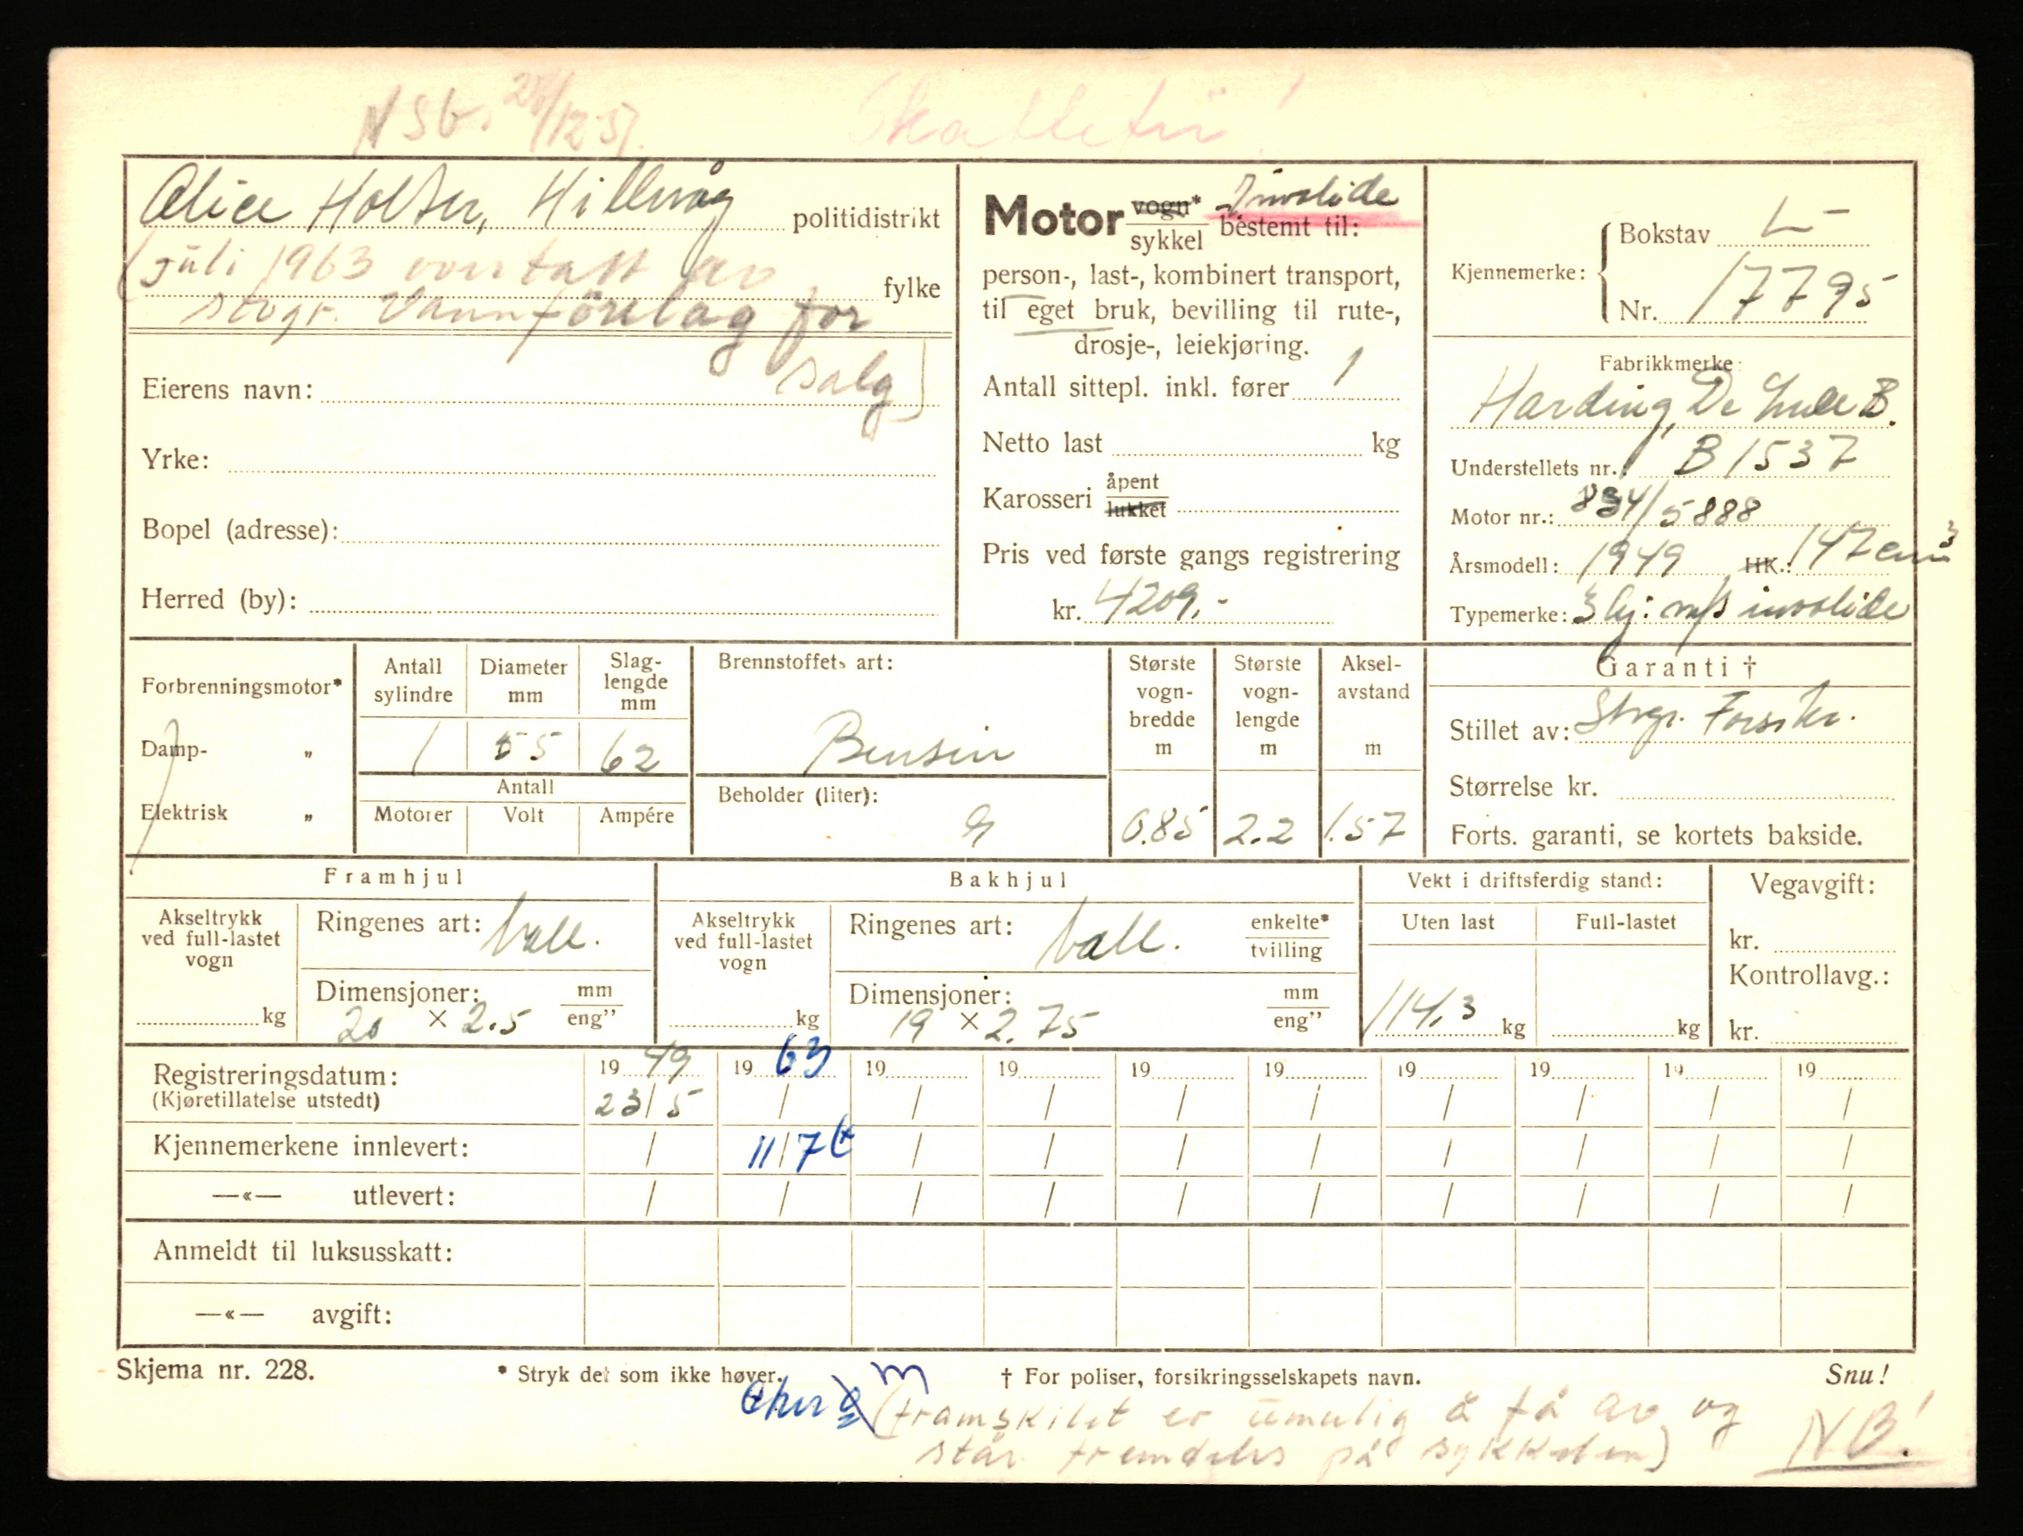 NSB. 28/12 57.
Skattefri!
Alice Holter, Hillevåg politidistrikt
(juli 1963 overtatt av fylke
stvgr. Vannforelag for
salg)
Eierens navn:
Yrke:
Bopel (adresse):
Herred (by):
Motor vogn* sykkel Invalide bestemt til:
person-, last-, kombinert transport,
til eget bruk, bevilling til rute-,
drosje-, leiekjøring.
Antall sittepl. inkl. fører 1
Netto last kg
Karosseri åpent lukket
Pris ved første gangs registrering
kr. 4209,-
Kjennemerke: Bokstav L-
Nr. 17795
Fabrikkmerke:
Harding, De Luxe B.
Understellets nr.: B 1537
Motor nr.: 834/5888
Årsmodell: 1949 HK.: 147 cm3
Typemerke: 3 hj: m/s invalide
Forbrenningsmotor*
Damp- „
Elektrisk „
Antall sylindre 1
Diameter mm 55
Slag-lengde mm 62
Antall
Motorer Volt Ampére
Brennstoffets art:
Bensin
Beholder (liter):
9
Største vogn-bredde m 0.85
Største vogn-lengde m 2.2
Aksel-avstand m 1.57
Garanti †
Stillet av: Stvgr. Forsikr.
Størrelse kr.
Forts. garanti, se kortets bakside.
Framhjul
Akseltrykk ved full-lastet vogn kg
Ringenes art: ball.
Dimensjoner: mm eng”
20 × 2.5
Bakhjul
Akseltrykk ved full-lastet vogn kg
Ringenes art: ball. enkelte* tvilling
Dimensjoner: mm eng”
19 × 2.75
Vekt i driftsferdig stand:
Uten last Full-lastet
114,3 kg kg
Vegavgift:
kr.
Kontrollavg.:
kr.
Registreringsdatum: 19 49 19 63 19 19 19 19 19 19 19 19
(Kjøretillatelse utstedt) 23/5 / / / / / / / / /
Kjennemerkene innlevert: / 11/7 / / / / / / / /
—«— utlevert: / / / / / / / / / /
Anmeldt til luksusskatt:
—«— avgift:
Skjema nr. 228. * Stryk det som ikke høver. † For poliser, forsikringsselskapets navn. Snu!
(framskilet er umulig å få av og NB!
står fremdeles på sykkelen)